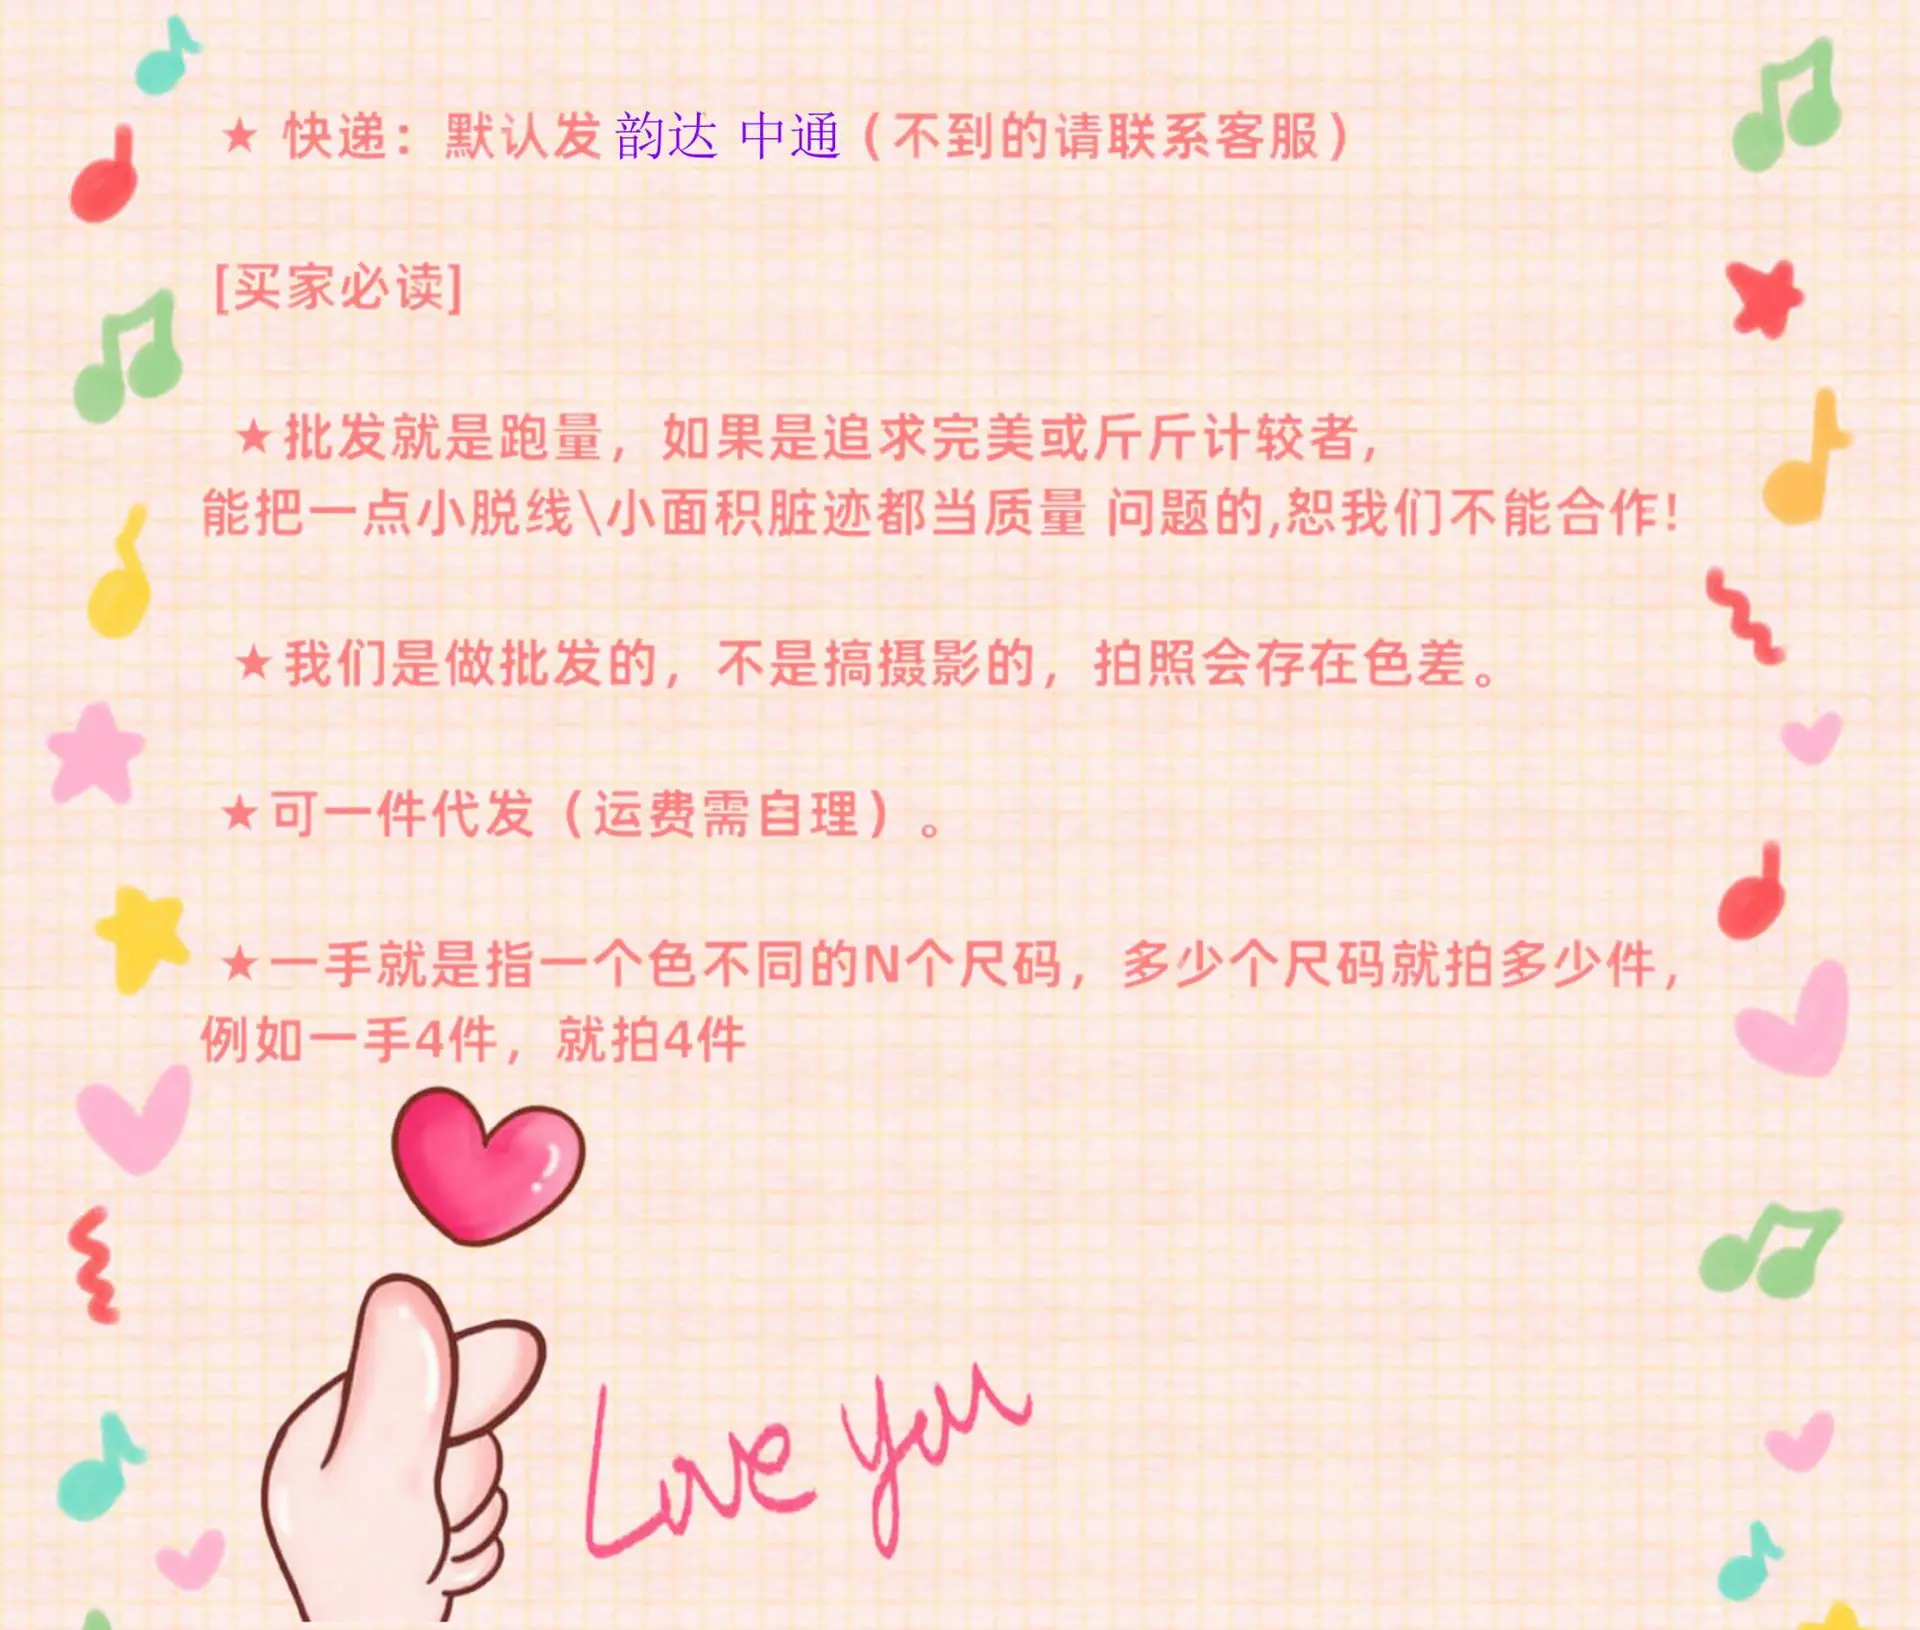 ★ 快递：默认发 韵达 中通（不到的请联系客服）
[买家必读]
★批发就是跑量，如果是追求完美或斤斤计较者，
能把一点小脱线\小面积脏迹都当质量 问题的,恕我们不能合作!
★我们是做批发的，不是搞摄影的，拍照会存在色差。
★可一件代发（运费需自理）。
★一手就是指一个色不同的N个尺码，多少个尺码就拍多少件，
例如一手4件，就拍4件
Love you